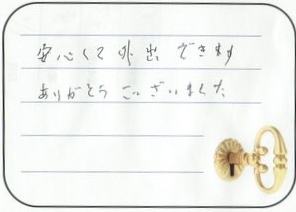 安心して外出できます
ありがとうございました